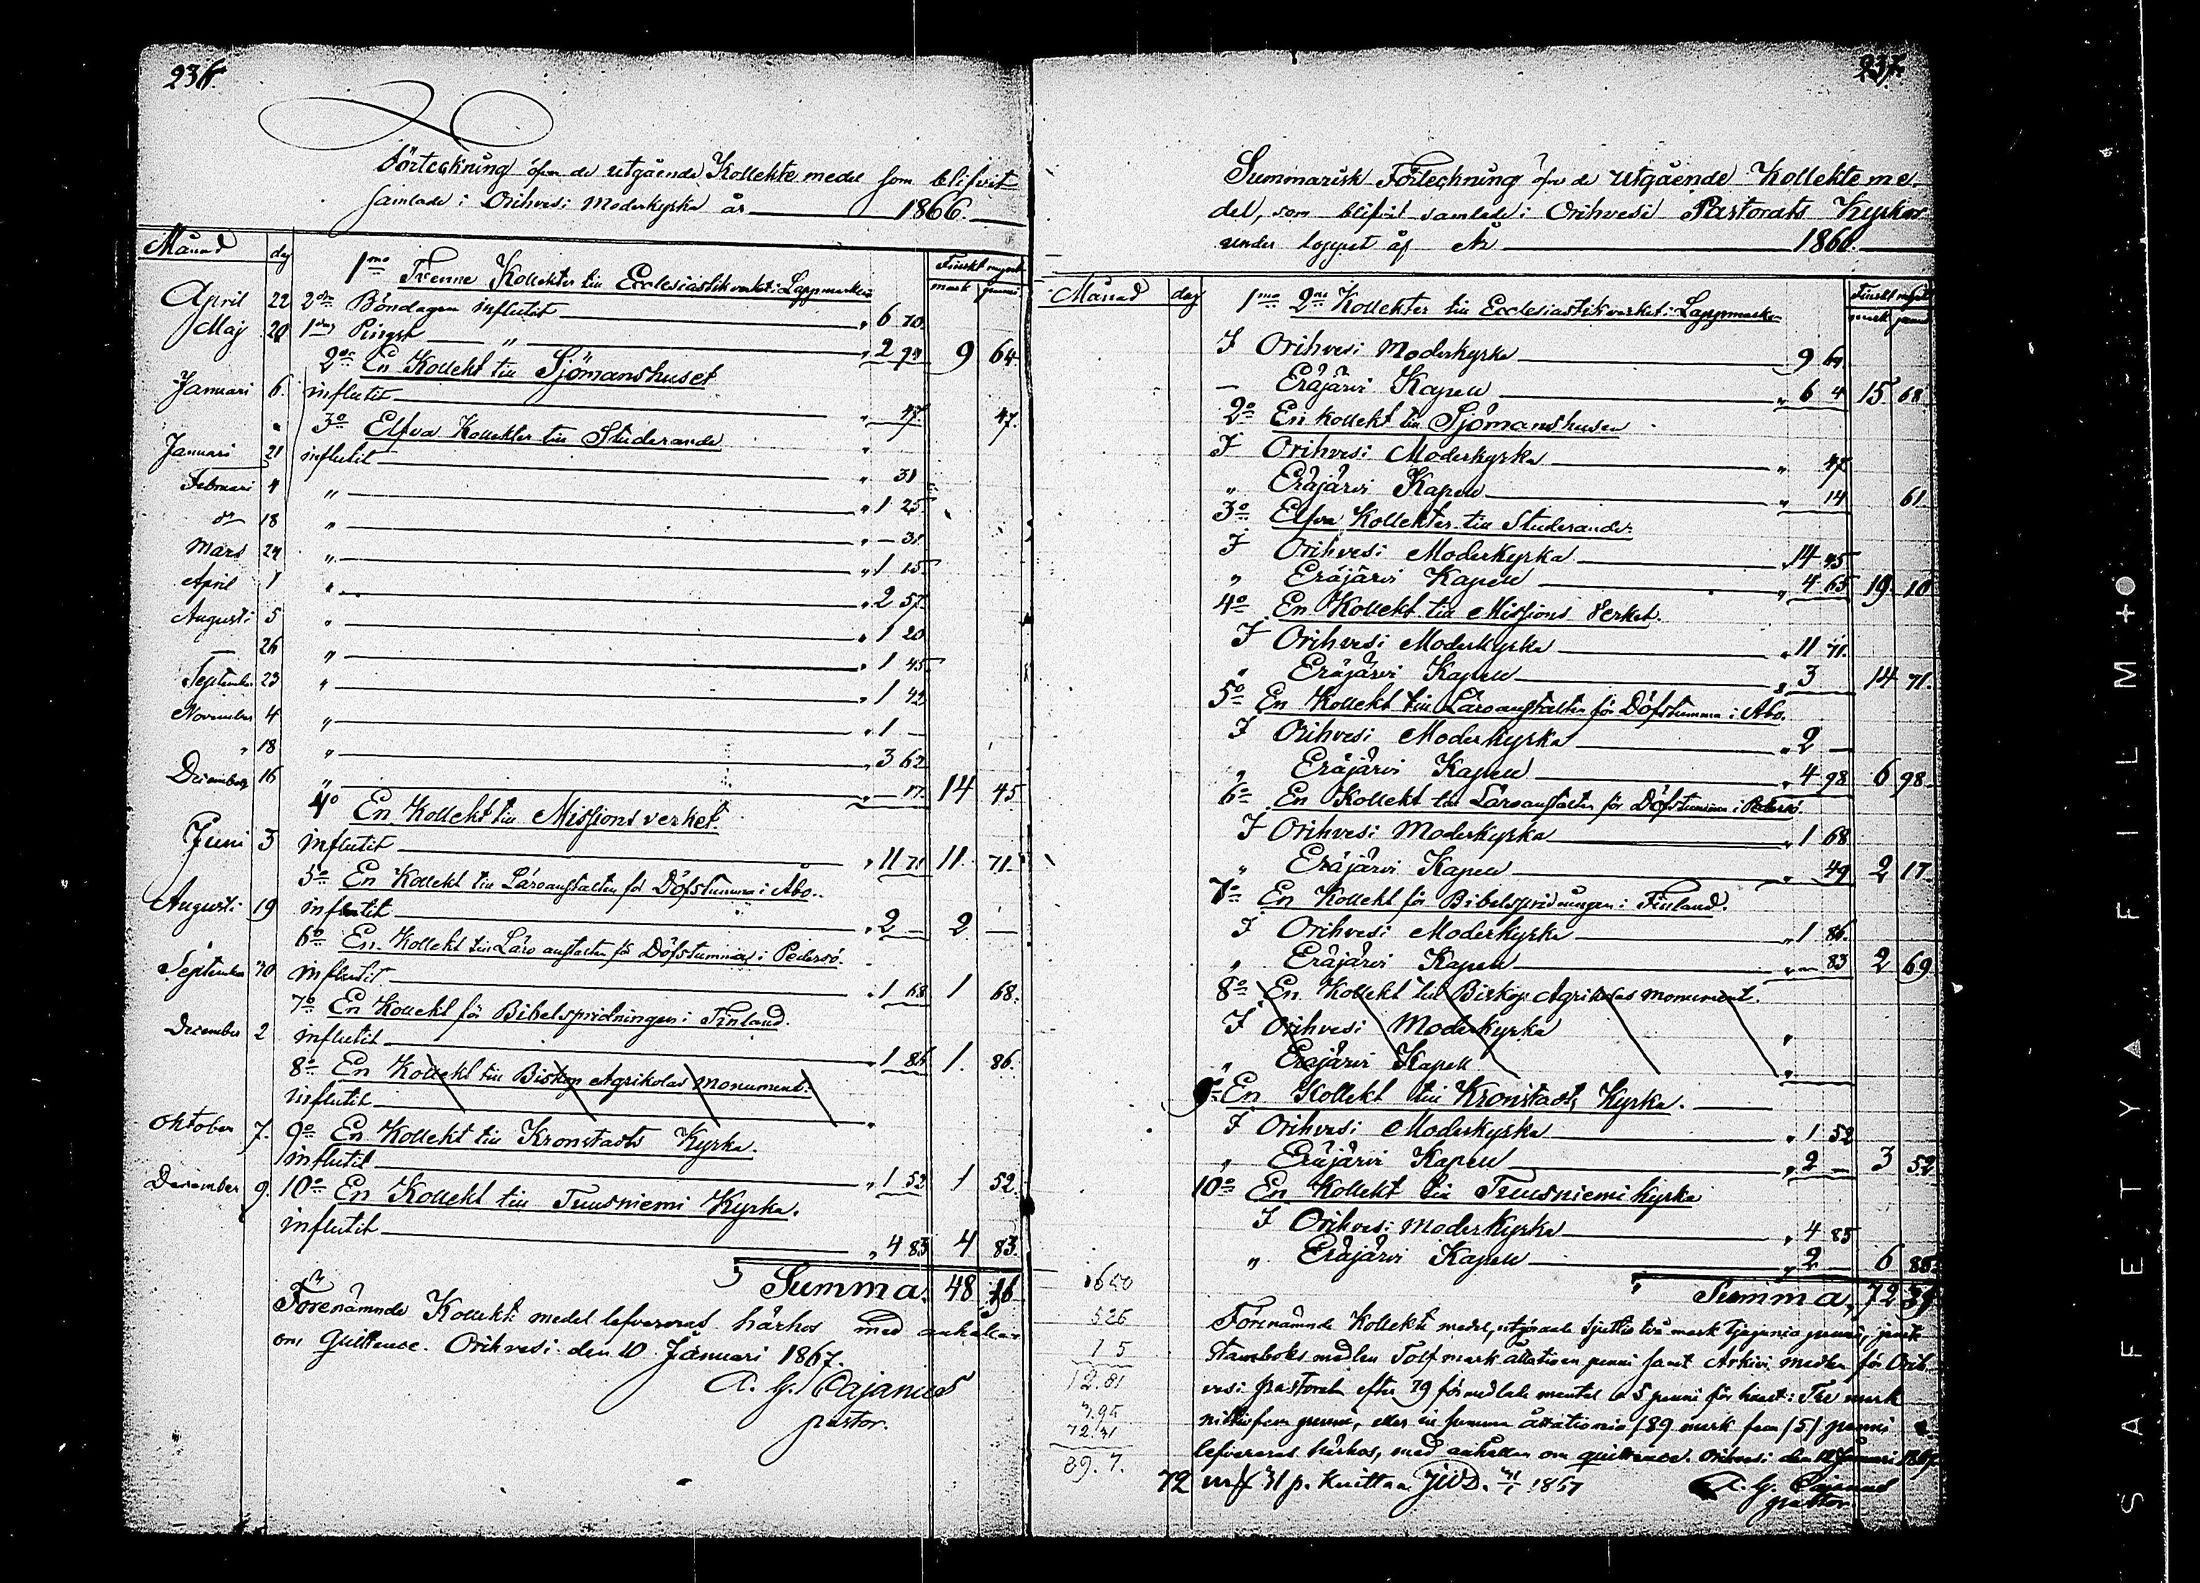 236.
Förteckning öfver de utgående Kollekte medel som blifvit
samlade i Orihvesi Moderkyrka år 1866.
Månad dag Finskt mynt
mark penni
1mo Tvenne Kollekter till Ecclesiastikverket i Lappmarken
April 22 2dra Böndagen influtit " 6 70.
Maj 20 1dag Pingst " " 2 94 9 64.
2do En Kollekt till Sjömanshuset
Januari 6. influtit " 47 47.
3o Elfva Kollekter till Studerande
Januari 21 influtit " 31
Februari 4 " " 1 25
do 18 " " — 31
Mars 24 " " 1 15
April 1 " " 2 57
Augusti 5 " " 1 20
— 26 " " 1 45
September 23 " " 1 42
November 4 " " 1 —
" 18 " " 3 62
December 16 " " — 17. 14 45
4o En Kollekt till Missionsverket.
Juni 3 influtit " 11 71 11. 71.
5o En Kollekt till Läroanstalten för Döfstumma i Åbo.
Augusti 19 influtit " 2 — 2 —
6o En Kollekt till Läroanstalten för Döfstumma i Pedersö.
September 30 influtit " 1 68 1 68.
7o En Kollekt för Bibelspridningen i Finland.
December 2 influtit " 1 86 1. 86.
8o En Kollekt till Biskop Agrikolas monument.
influtit "
Oktober 7. 9o En Kollekt till Kronstadts Kyrka.
influtit " 1 52 1 52.
December 9. 10o En Kollekt till Tuusniemi Kyrka.
influtit " 4 83 4 83.
Summa. 48 16
Förenämnde Kollekt medel lefvereras härhos med anhållan
om quittence. Orihvesi den 10 Januari 1867.
A. G. Cajanus
pastor.
237.
Summarisk Förteckning öfver de utgående Kollekteme-
del, som blifvit samlade i Orihvesi Pastorats Kyrkor
under loppet af År 1866.
Månad dag Finskt mynt
mark penni
1mo 2ne Kollekter till Ecclesiastikverket i Lappmarken
I Orihvesi Moderkyrka 9 64
— Eräjärvi Kapell " 6 4 15 68.
2o En kollekt till Sjömanshuset
I Orihvesi Moderkyrka " 47
" Eräjärvi Kapell " 14 61.
3o Elfva Kollekter till Studerande.
I Orihvesi Moderkyrka " 14 45
" Eräjärvi Kapell " 4 65 19. 10
4o En Kollekt till Missions Verket.
I Orihvesi Moderkyrka " 11 71.
" Eräjärvi Kapell " 3 14 71.
5o En Kollekt till Läroanstalten för Döfstumma i Åbo.
I Orihvesi Moderkyrka " 2 —
" Eräjärvi Kapell " 4 98 6 98.
6o En Kollekt till Läroanstalten för Döfstumma i Pedersö.
I Orihvesi Moderkyrka " 1 68
" Eräjärvi Kapell " 49 2 17.
7o En Kollekt för Bibelspridningen i Finland.
I Orihvesi Moderkyrka " 1 86.
" Eräjärvi Kapell " — 83 2 69.
8o En Kollekt till Biskop Agrikolas monument.
I Orihvesi Moderkyrka "
" Eräjärvi Kapell "
9o En Kollekt till Kronstadts Kyrka.
I Orihvesi Moderkyrka " 1 52
" Eräjärvi Kapell " 2 — 3 52
10o En Kollekt till Tuusniemi kyrka
I Orihvesi Moderkyrka " 4 85
" Eräjärvi Kapell " 2 6 85.
Summa, 72 31
Förenämnde Kollekte medel, utgörande Sjuttio två mark penni, jemte
Stamboks medlen Tolf mark åttatioen penni samt Arkivi medlen för Orih-
vesi pastorat efter 79 förmedlade mantal à 5 penni för hvart: Tre mark
nittiofem penni, eller in summa åttationio /89 mark /penni
lefvereras härhos, med anhållan om quittence. Orihvesi den Januari 1867.
A. G. Cajanus
pastor.
1650
526
1 5
12.81
3.95
72.31
89.7.
72 mf 31 p. kvittaa JWD. 31/1 1867
SAFETY FILM